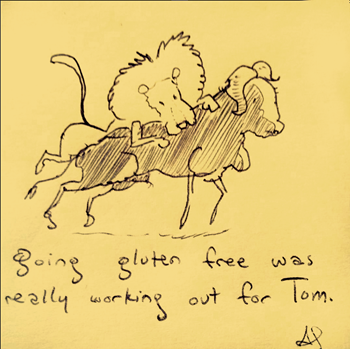 Going gluten free was
really working out for Tom.